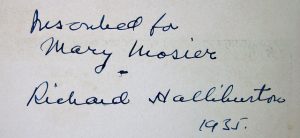 Inscribed for
Mary Mosier
-
Richard Halliburton
1935.